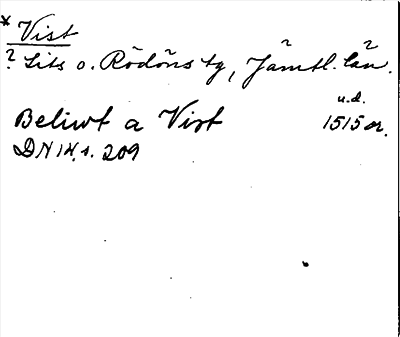 * Vist
? Lits o. Rödöns tg, Jämtl. län.
u.d.
Beliwt a Vist 1515 or.
DN 14, s. 209